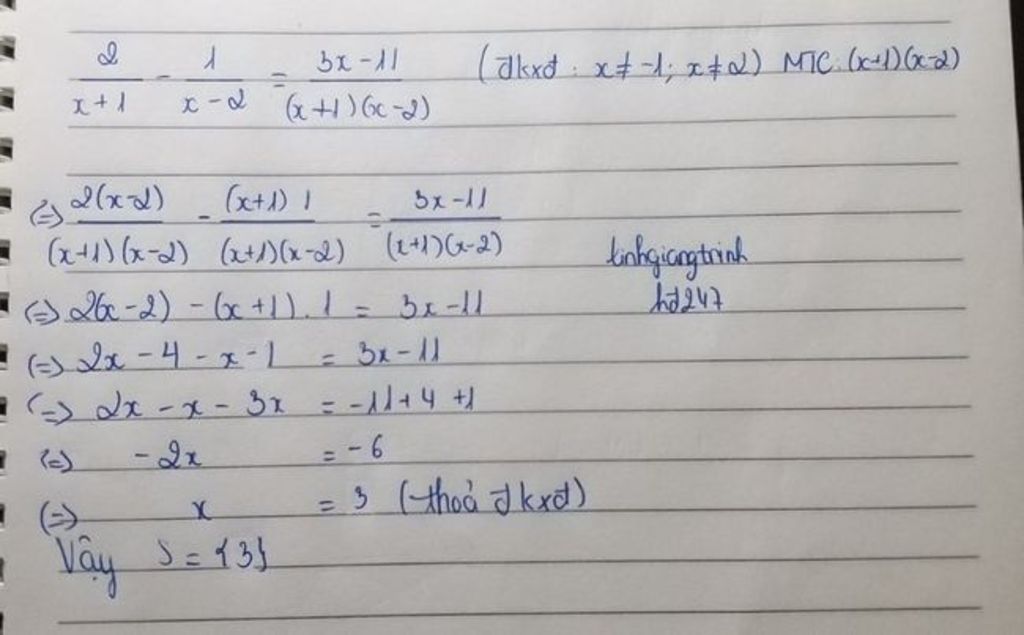 2/(x+1) - 1/(x-2) = (3x-11)/((x+1)(x-2)) (đkxđ: x ≠ -1; x ≠ 2) MTC: (x+1)(x-2)
(=) 2(x-2)/((x+1)(x-2)) - (x+1)1/((x+1)(x-2)) = (3x-11)/((x+1)(x-2))
linhgiangtrinh
hd247
(=) 2(x-2) - (x+1).1 = 3x-11
(=) 2x - 4 - x - 1 = 3x - 11
(=) 2x - x - 3x = -11 + 4 + 1
(=) -2x = -6
(=) x = 3 (thoả đkxđ)
Vậy S = {3}